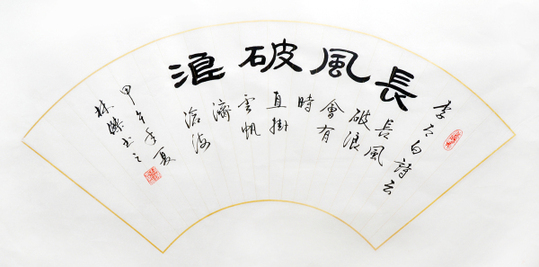 長風破浪
李太白詩云
長風
破浪
會有
時
直掛
雲帆
濟
滄海
甲午年夏
林濤書之